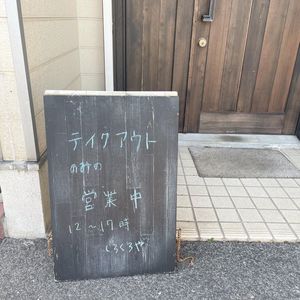 テイクアウト
のみの
営業中
12〜17時
しろくろや